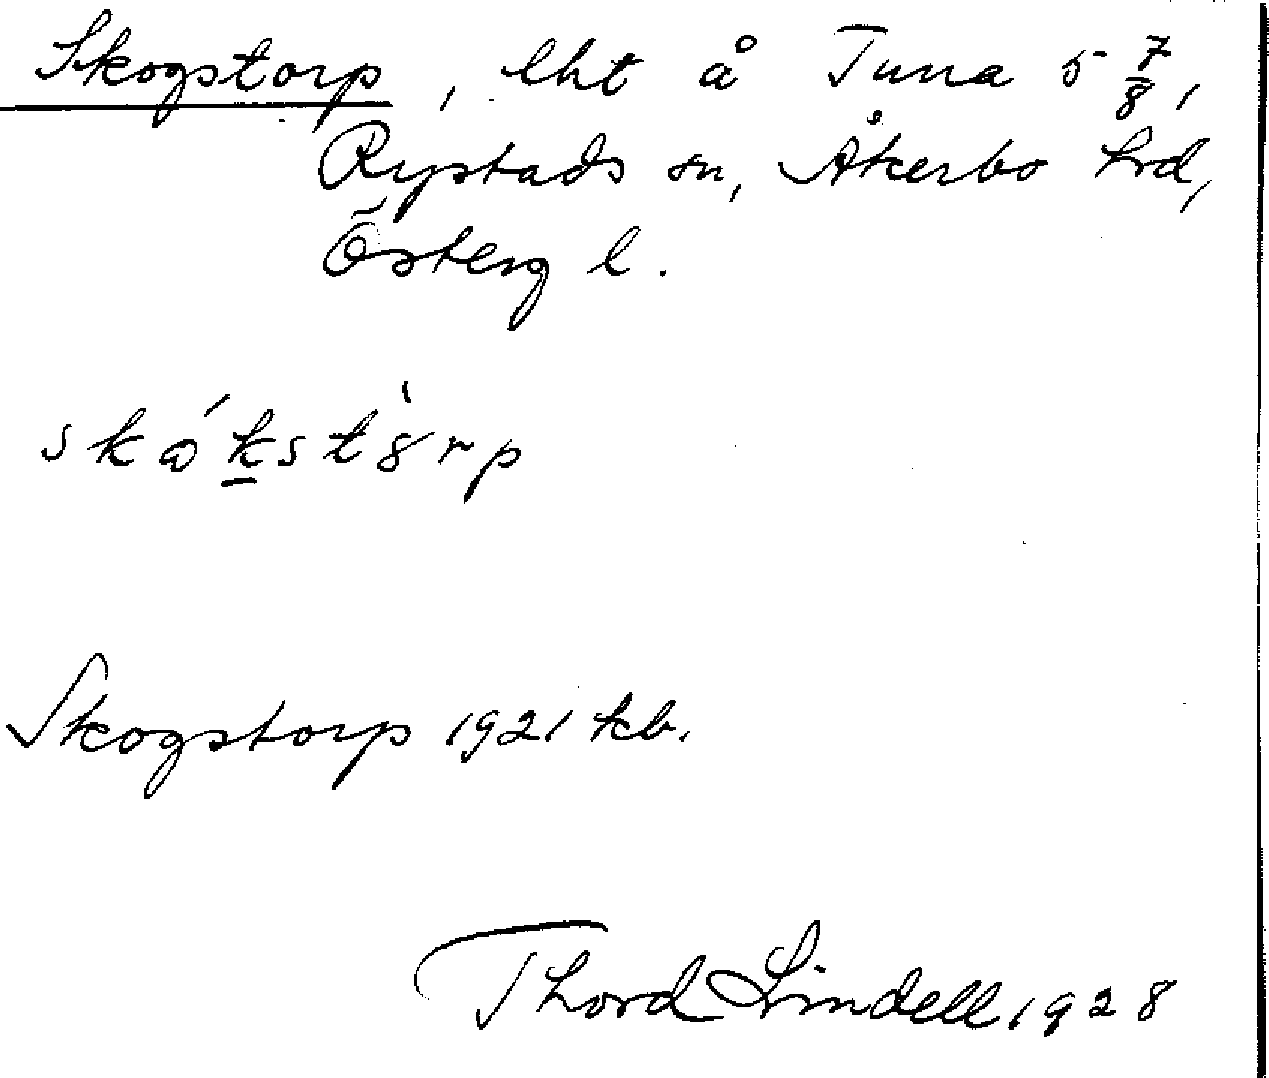 Skogstorp, lht å Tuna 5 7/8,
Rystads sn, Åkerbo hrd,
Österg l.
Skogstorp 1921 kb.
Thord Lindell 1928